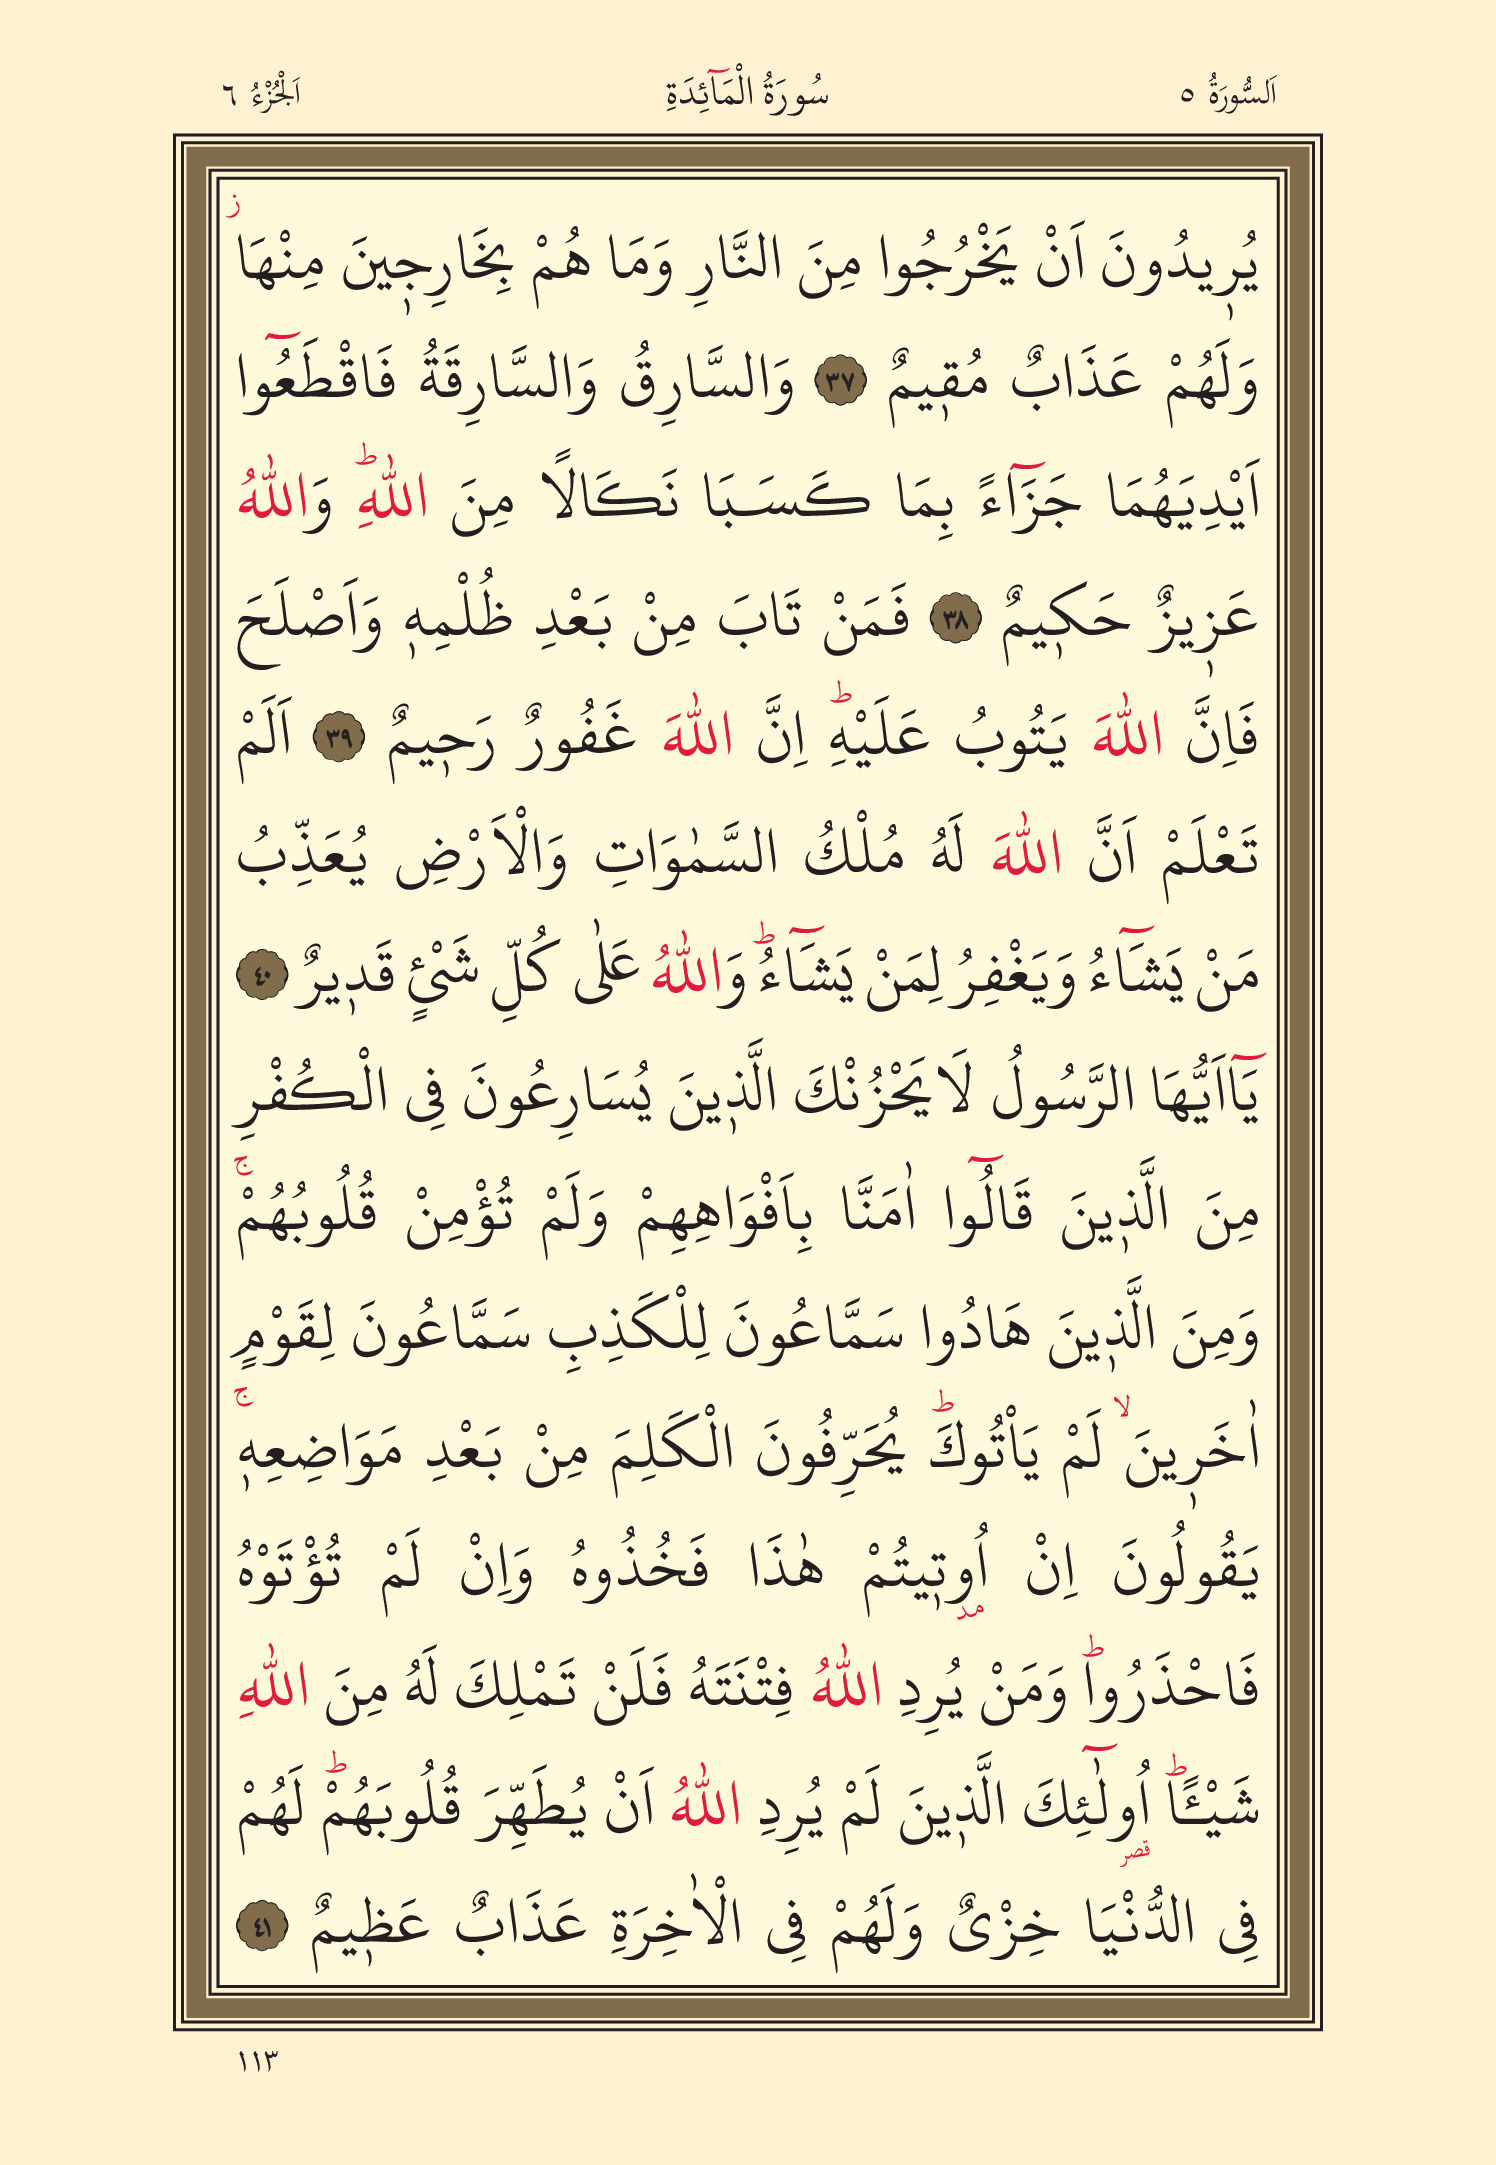 اَلسُّورَةُ ٥ سُورَةُ الْمَآئِدَةِ اَلْجُزْءُ ٦
يُرٖيدُونَ اَنْ يَخْرُجُوا مِنَ النَّارِ وَمَا هُمْ بِخَارِجٖينَ مِنْهَاؗ
وَلَهُمْ عَذَابٌ مُقٖيمٌ ٣٧ وَالسَّارِقُ وَالسَّارِقَةُ فَاقْطَعُٓوا
اَيْدِيَهُمَا جَزَٓاءً بِمَا كَسَبَا نَكَالًا مِنَ اللّٰهِؕ وَاللّٰهُ
عَزٖيزٌ حَكٖيمٌ ٣٨ فَمَنْ تَابَ مِنْ بَعْدِ ظُلْمِهٖ وَاَصْلَحَ
فَاِنَّ اللّٰهَ يَتُوبُ عَلَيْهِؕ اِنَّ اللّٰهَ غَفُورٌ رَحٖيمٌ ٣٩ اَلَمْ
تَعْلَمْ اَنَّ اللّٰهَ لَهُ مُلْكُ السَّمٰوَاتِ وَالْاَرْضِ يُعَذِّبُ
مَنْ يَشَٓاءُ وَيَغْفِرُ لِمَنْ يَشَٓاءُؕ وَاللّٰهُ عَلٰى كُلِّ شَيْئٍ قَدٖيرٌ ٤٠
يَٓا اَيُّهَا الرَّسُولُ لَا يَحْزُنْكَ الَّذٖينَ يُسَارِعُونَ فِى الْكُفْرِ
مِنَ الَّذٖينَ قَالُٓوا اٰمَنَّا بِاَفْوَاهِهِمْ وَلَمْ تُؤْمِنْ قُلُوبُهُمْۚ
وَمِنَ الَّذٖينَ هَادُوا سَمَّاعُونَ لِلْكَذِبِ سَمَّاعُونَ لِقَوْمٍ
اٰخَرٖينَۙ لَمْ يَاْتُوكَؕ يُحَرِّفُونَ الْكَلِمَ مِنْ بَعْدِ مَوَاضِعِهٖۚ
يَقُولُونَ اِنْ اُوتٖيتُمْ هٰذَا فَخُذُوهُ وَاِنْ لَمْ تُؤْتَوْهُ
مد
فَاحْذَرُواؕ وَمَنْ يُرِدِ اللّٰهُ فِتْنَتَهُ فَلَنْ تَمْلِكَ لَهُ مِنَ اللّٰهِ
شَيْـًٔاؕ اُولٰٓئِكَ الَّذٖينَ لَمْ يُرِدِ اللّٰهُ اَنْ يُطَهِّرَ قُلُوبَهُمْؕ لَهُمْ
قصر
فِى الدُّنْيَا خِزْىٌ وَلَهُمْ فِى الْاٰخِرَةِ عَذَابٌ عَظٖيمٌ ٤١
١١٣